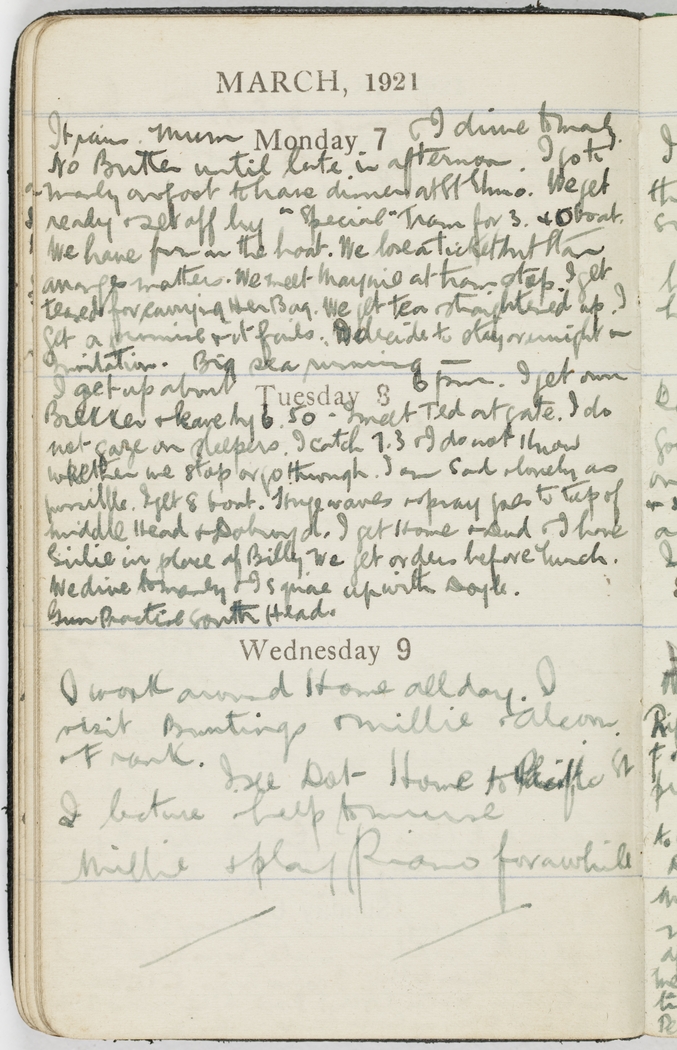 MARCH, 1921
It rains. Mum Monday 7 & I drive to manly.
No Butter until late in afternoon. I go to
manly on foot to have dinner at St Elmo. We get
ready & set off by "Special" Tram for 3. boat.
We have fun on the boat. We lose a ticket but Stan
arranges matters. We meet Maynie at tram stop. I get
teased for carrying Her Bag. We get tea & straightened up. I
get a promise & it fails. Decide to stay overnight on
invitation. Big sea running
I get up about Tuesday 8 6 pm. I get own
Brekker & leave by 6.50 - I meet Ted at gate. I do
not gaze on sleepers. I catch 7.3 & I do not know
whether we stop or go through. I am Sad & lonely as
possible. I get 8 boat. Huge waves & spray goes to top of
middle Head & Dobroyd. I get Home & Sid & I have
in place of Billy. We get orders before lunch.
We drive to manly & I square up with Doyle.
Gun Practice South Head.
Wednesday 9
I work around Home all day. I
visit Buntings & millie &
& Frank.
I see Dot Home to St
I lecture help to nurse
Millie & play Piano for awhile